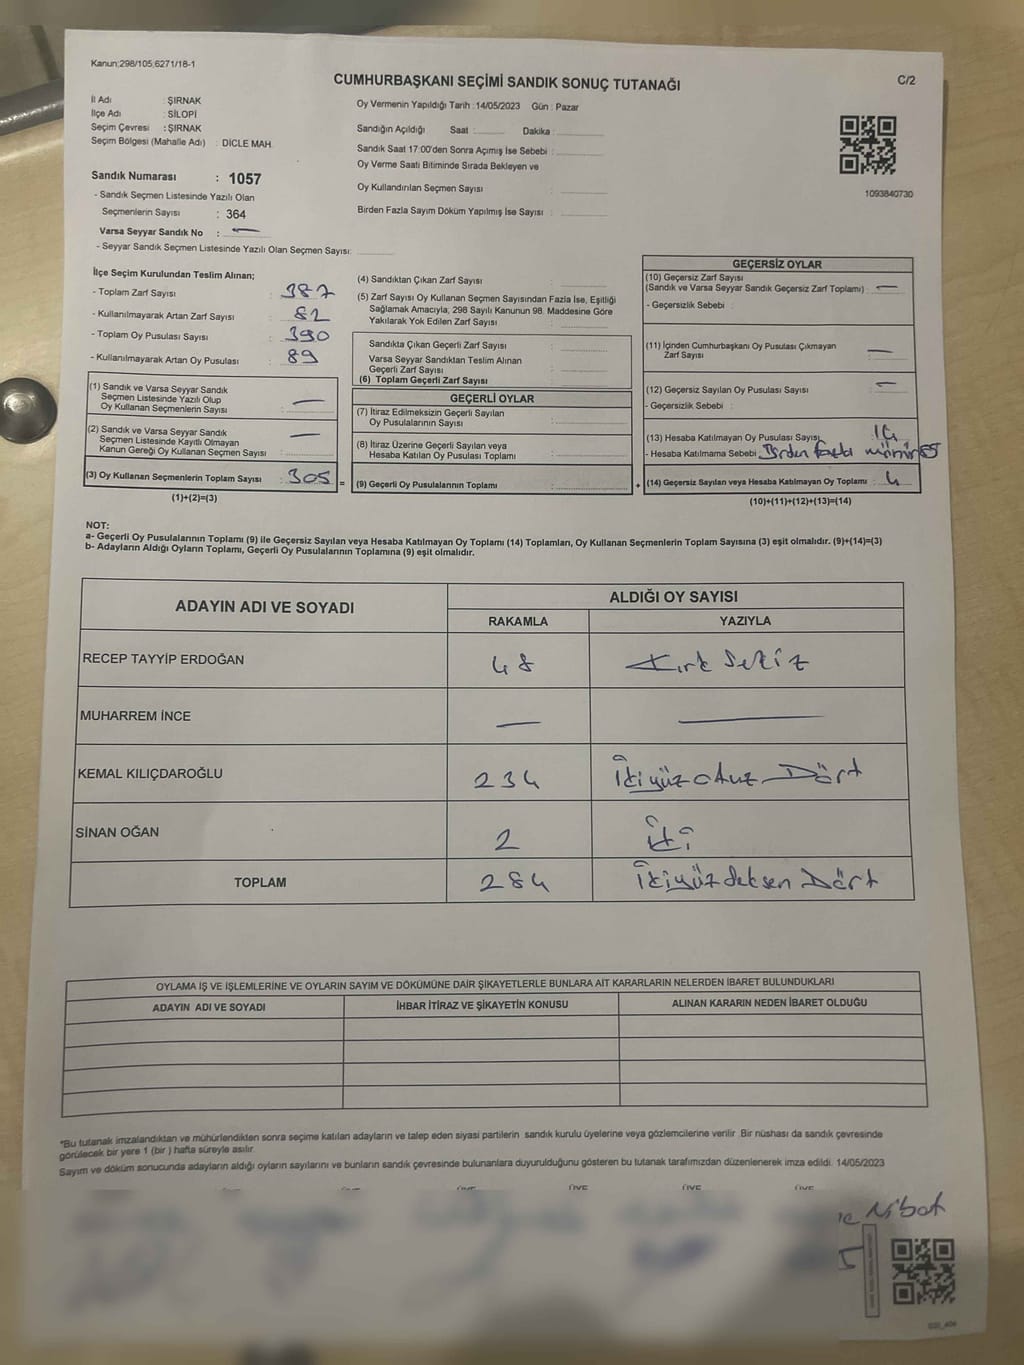 Kanun;298/105;6271/18-1
CUMHURBAŞKANI SEÇİMİ SANDIK SONUÇ TUTANAĞI
C/2
İl Adı : ŞIRNAK
İlçe Adı : SİLOPİ
Seçim Çevresi : ŞIRNAK
Seçim Bölgesi (Mahalle Adı) : DİCLE MAH.
Oy Vermenin Yapıldığı Tarih : 14/05/2023 Gün : Pazar
Sandığın Açıldığı Saat Dakika :
Sandık Saat 17:00'den Sonra Açımış İse Sebebi :
Oy Verme Saati Bitiminde Sırada Bekleyen ve
Oy Kullandırılan Seçmen Sayısı :
Birden Fazla Sayım Döküm Yapılmış İse Sayısı :
1093840730
Sandık Numarası : 1057
- Sandık Seçmen Listesinde Yazılı Olan
Seçmenlerin Sayısı : 364
Varsa Seyyar Sandık No : —
- Seyyar Sandık Seçmen Listesinde Yazılı Olan Seçmen Sayısı:
İlçe Seçim Kurulundan Teslim Alınan;
- Toplam Zarf Sayısı : 387
- Kullanılmayarak Artan Zarf Sayısı : 82
- Toplam Oy Pusulası Sayısı : 390
- Kullanılmayarak Artan Oy Pusulası : 89
(1) Sandık ve Varsa Seyyar Sandık
Seçmen Listesinde Yazılı Olup
Oy Kullanan Seçmenlerin Sayısı : —
(2) Sandık ve Varsa Seyyar Sandık
Seçmen Listesinde Kayıtlı Olmayan
Kanun Gereği Oy Kullanan Seçmen Sayısı : —
(3) Oy Kullanan Seçmenlerin Toplam Sayısı : 305 =
(1)+(2)=(3)
(4) Sandıktan Çıkan Zarf Sayısı :
(5) Zarf Sayısı Oy Kullanan Seçmen Sayısından Fazla İse, Eşitliği
Sağlamak Amacıyla; 298 Sayılı Kanunun 98. Maddesine Göre
Yakılarak Yok Edilen Zarf Sayısı :
Sandıkta Çıkan Geçerli Zarf Sayısı :
Varsa Seyyar Sandıktan Teslim Alınan
Geçerli Zarf Sayısı :
(6) Toplam Geçerli Zarf Sayısı
GEÇERLİ OYLAR
(7) İtiraz Edilmeksizin Geçerli Sayılan
Oy Pusulalarının Sayısı :
(8) İtiraz Üzerine Geçerli Sayılan veya
Hesaba Katılan Oy Pusulası Toplamı :
(9) Geçerli Oy Pusulalarının Toplamı : +
GEÇERSİZ OYLAR
(10) Geçersiz Zarf Sayısı
(Sandık ve Varsa Seyyar Sandık Geçersiz Zarf Toplamı) : —
- Geçersizlik Sebebi :
(11) İçinden Cumhurbaşkanı Oy Pusulası Çıkmayan
Zarf Sayısı : —
(12) Geçersiz Sayılan Oy Pusulası Sayısı : —
- Geçersizlik Sebebi :
(13) Hesaba Katılmayan Oy Pusulası Sayısı:
- Hesaba Katılmama Sebebi : Birden fazla
(14) Geçersiz Sayılan veya Hesaba Katılmayan Oy Toplamı : 4
(10)+(11)+(12)+(13)=(14)
NOT:
a- Geçerli Oy Pusulalarının Toplamı (9) ile Geçersiz Sayılan veya Hesaba Katılmayan Oy Toplamı (14) Toplamları, Oy Kullanan Seçmenlerin Toplam Sayısına (3) eşit olmalıdır. (9)+(14)=(3)
b- Adayların Aldığı Oyların Toplamı, Geçerli Oy Pusulalarının Toplamına (9) eşit olmalıdır.
ADAYIN ADI VE SOYADI ALDIĞI OY SAYISI
RAKAMLA YAZIYLA
RECEP TAYYİP ERDOĞAN 48 Kırk Sekiz
MUHARREM İNCE — —
KEMAL KILIÇDAROĞLU 234 İkiyüz otuz Dört
SİNAN OĞAN 2 İki
TOPLAM 284 İkiyüz deksen Dört
OYLAMA İŞ VE İŞLEMLERİNE VE OYLARIN SAYIM VE DÖKÜMÜNE DAİR ŞİKAYETLERLE BUNLARA AİT KARARLARIN NELERDEN İBARET BULUNDUKLARI
ADAYIN ADI VE SOYADI İHBAR İTİRAZ VE ŞİKAYETİN KONUSU ALINAN KARARIN NEDEN İBARET OLDUĞU
*Bu tutanak imzalandıktan ve mühürlendikten sonra seçime katılan adayların ve talep eden siyasi partilerin sandık kurulu üyelerine veya gözlemcilerine verilir .Bir nüshası da sandık çevresinde
görülecek bir yere 1 (bir ) hafta süreyle asılır.
Sayım ve döküm sonucunda adayların aldığı oyların sayılarını ve bunların sandık çevresinde bulunanlara duyurulduğunu gösteren bu tutanak tarafımızdan düzenlenerek imza edildi. 14/05/2023
ÜYE ÜYE ÜYE ÜYE
Nibat